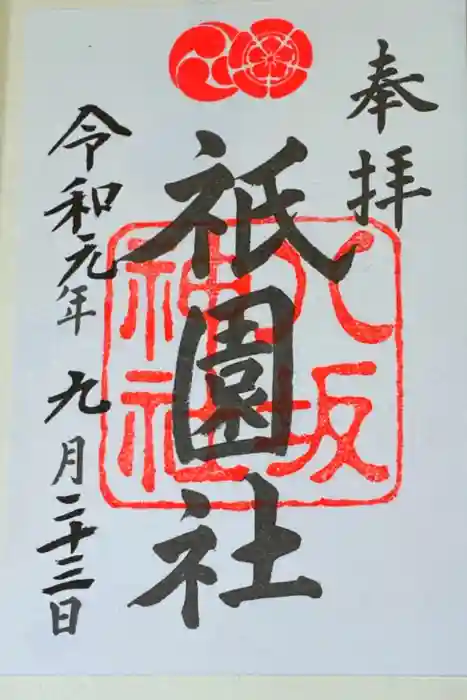 奉拝
八坂
神社
祇園社
令和元年 九月二十三日